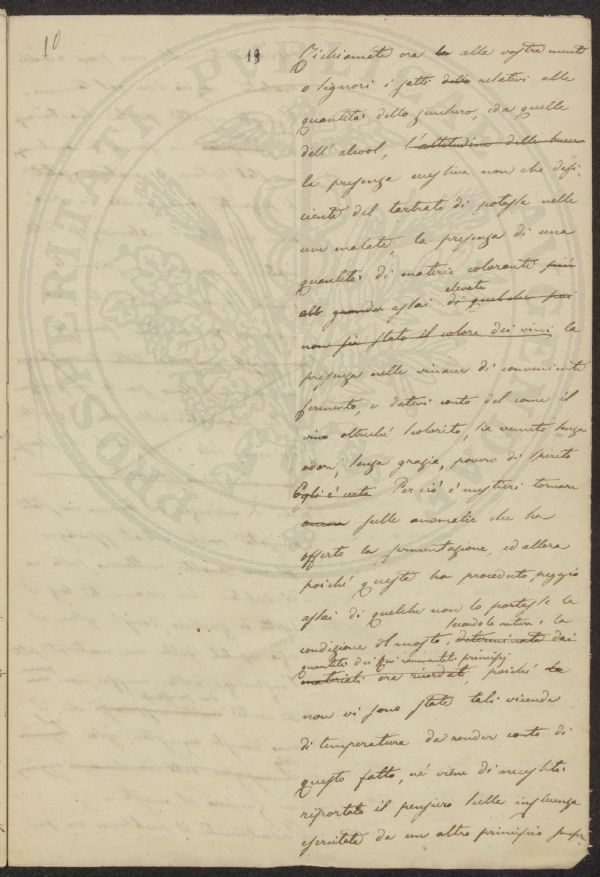 10
19
Richiamate ora la alle vostre menti
o Signori i fatti dello relativi alle
quantità dello zucchero, ed a quelle
dell'alcool, l'attitudine delle bucce
la presenza non che defi-
ciente del tartrato di potassa nelle
uve malate, la presenza di una
quantità di materia colorante più
elevata
abb grande assai di quel che poi
non sia stato il colore dei vini la
presenza nelle vinacce di conveniente
fermento, e datevi conto del come il
vino oltrechè scolorito, sia venuto senza
odore, senza grazia, povero di spirito
Egli è certo Perciò è mestieri tornare
ancora sulle anomalie che ha
offerto la fermentazione, ed allora
poichè questa ha proceduto peggio
assai di quelche non lo portasse la
secondo la natura e la
condizione del mosto, determinata dai
quantità dei rammentati principj
materiali ora ricordati, poichè la
non vi sono state tali vicende
di temperatura da render conto di
questo fatto, nè viene di necessità
riportato il pensiero sulla influenza
esercitata da un altro principio
PROSPERITATI PVBLICAE AVGENDAE